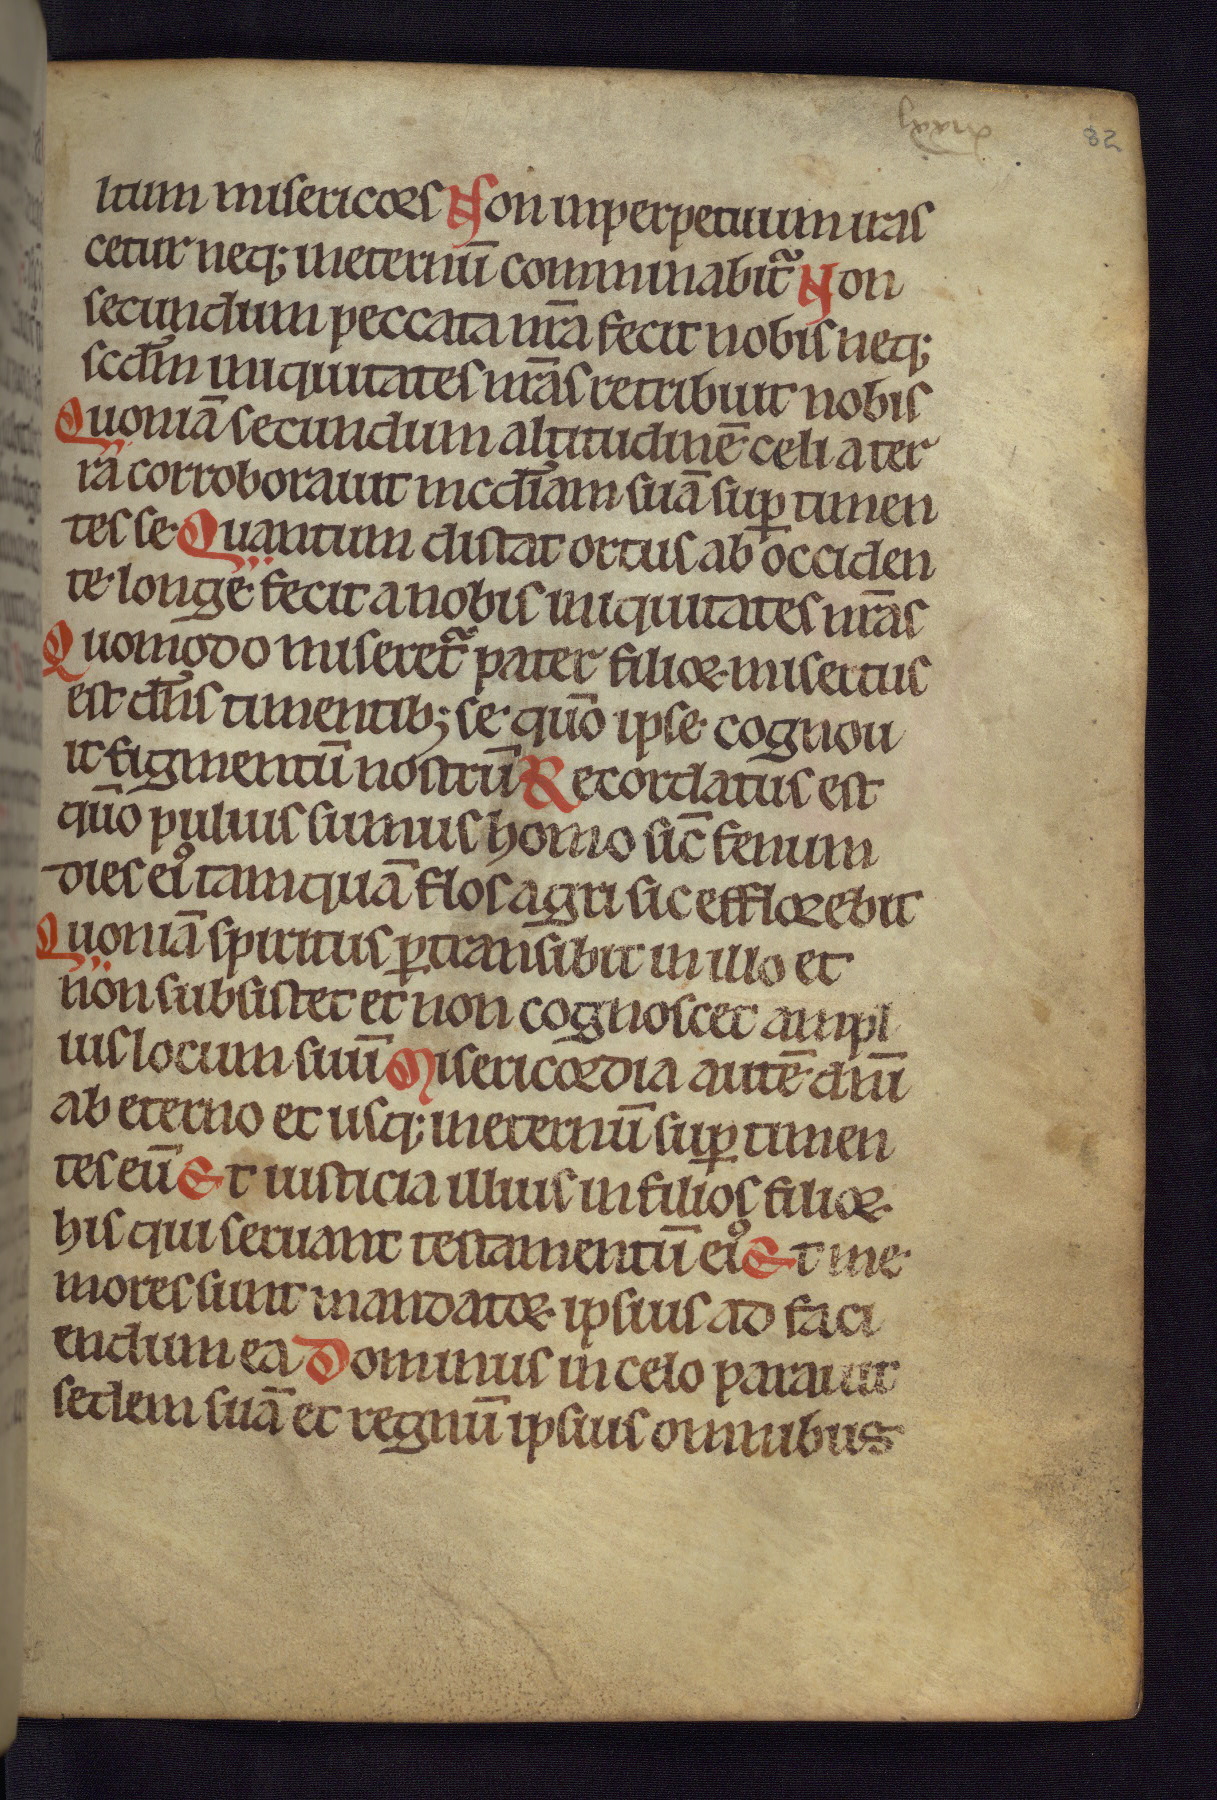 82
itum misericors Non inperpetuum iras
cetur neq; ineternū cominabit᷑ Non
secundum peccata nr̄a fecit nobis neq;
scd̄m iniquitates nr̄as retribuit nobis
Quoniā secundum altitudinē celi a ter
rā corroborauit mcd̄iam suā suꝑ timen
tes se Quantum distat ortus ab occiden
te longe fecit a nobis iniquitates nr̄as
Quomodo miseret᷑ pater filioꝝ misertus
est dn̄s timentib; se qūo ipse cognou
it figmentū nostrū Recordatus est
qūo puluis sumus homo sic̄ fenum
dies eiꝰ tamquā flos agri sic efflorebit
Quoniā spiritus ꝑtransibit in illo et
non subsistet et non cognoscet ampl
ius locum suū Misericordia autē dn̄i
ab eterno et usq; ineternū suꝑ timen
tes eū Et iusticia illius in filios filioꝝ
his qui seruant testamentū eiꝰ Et me
mores sunt mandatoꝝ ipsius ad faci
endum ea Dominus in celo parauit
sedem suā et regnū ipsius omnibus